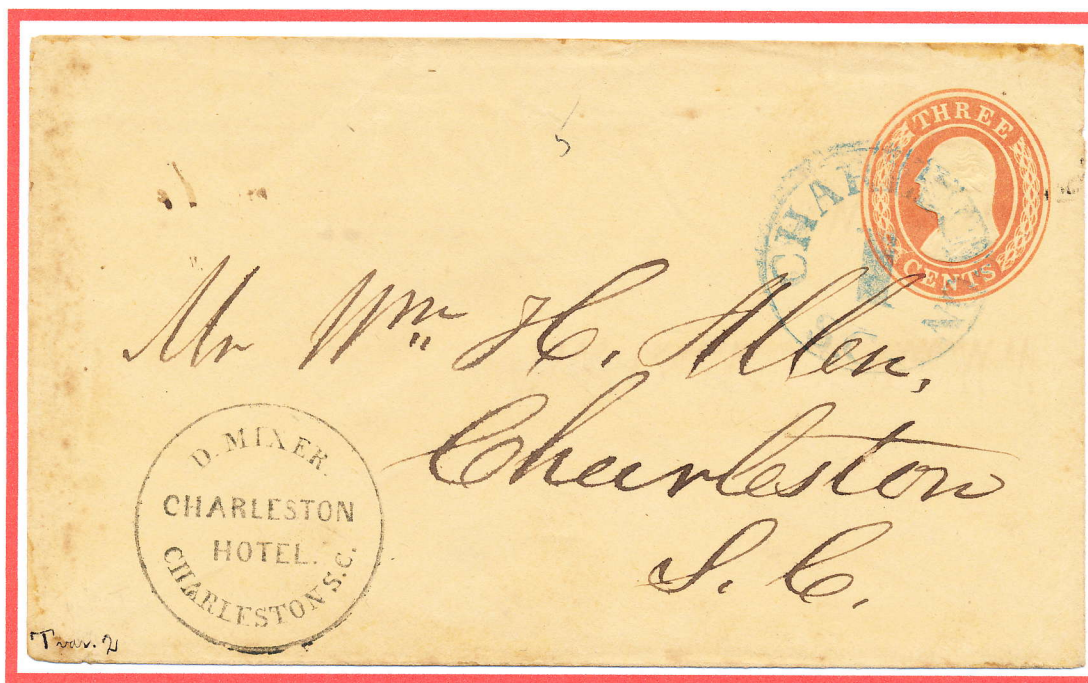 THREE
CENTS
5
Mr Wm H. Allen,
Charleston
S. C.
D. MIXER.
CHARLESTON
HOTEL.
CHARLESTON S.C.
T var. 2